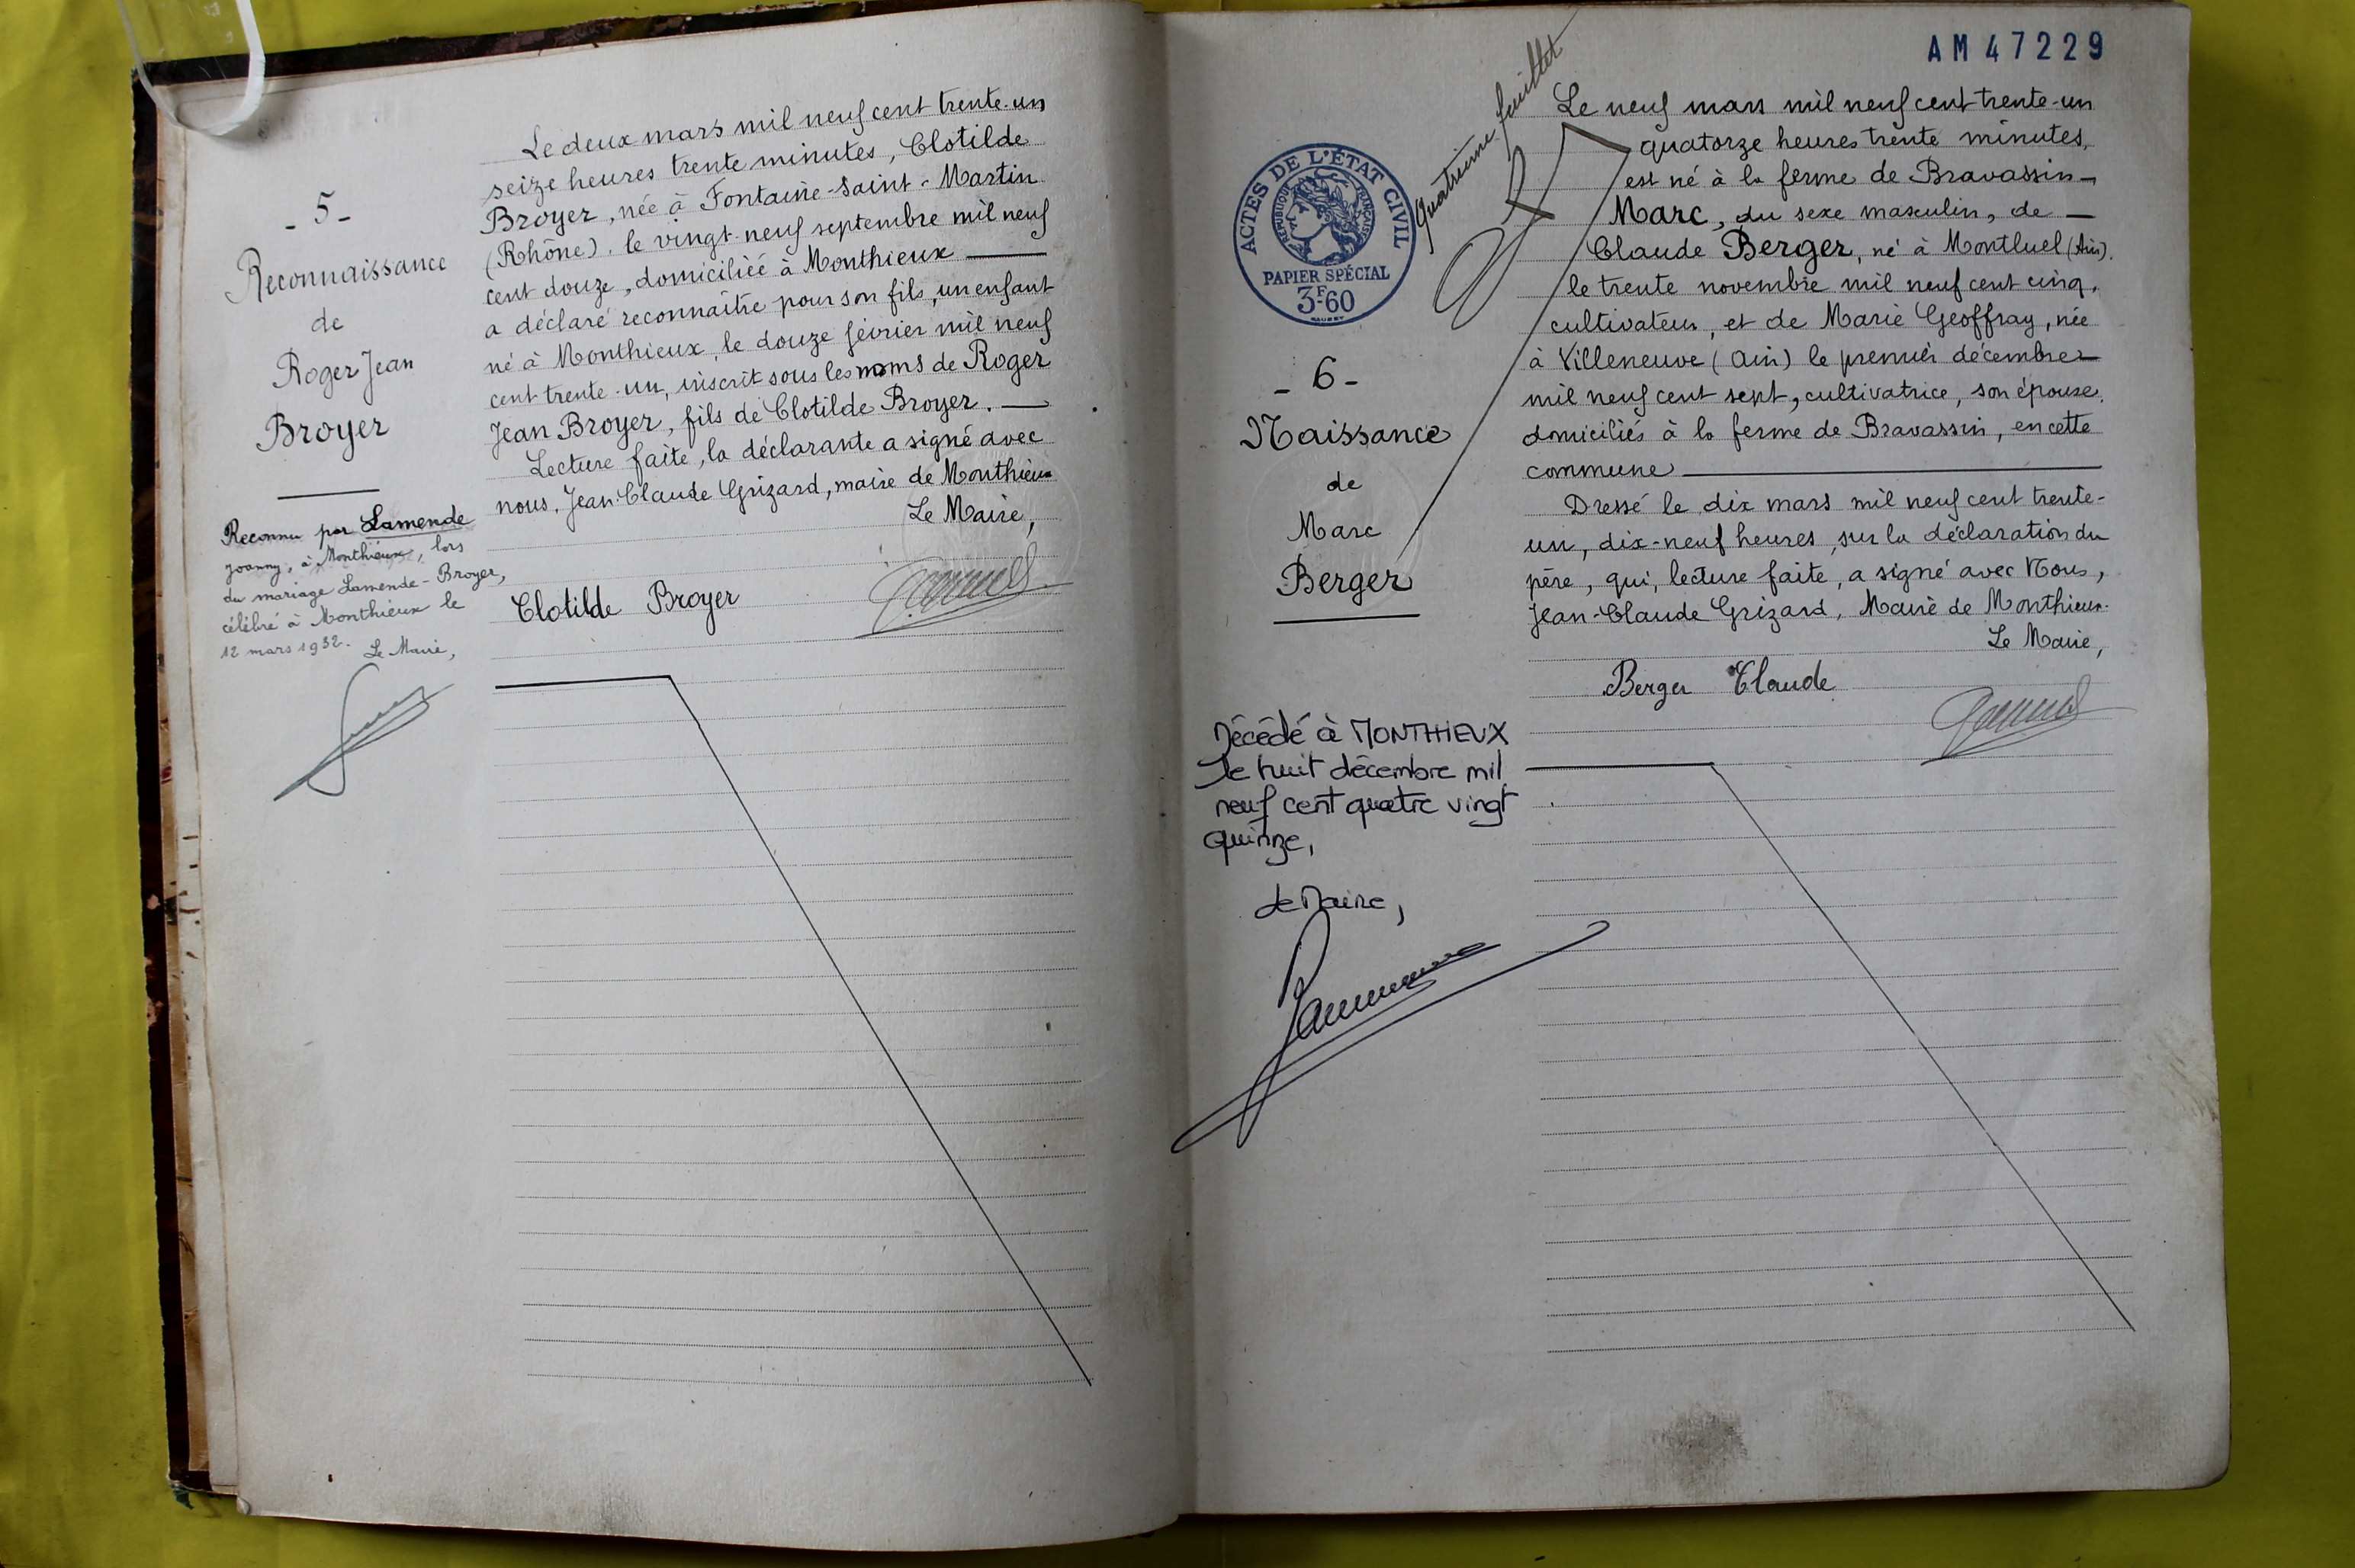 - 5 -
Reconnaissance
de
Roger Jean
Broyer
Reconnu par Lamende
Joanny, à Monthieux, lors
du mariage Lamende-Broyer,
célébré à Monthieux le
12 mars 1932. Le Maire,
Le deux mars mil neuf cent trente-un
seize heures trente minutes, Clotilde
Broyer, née à Fontaine-Saint-Martin
(Rhône), le vingt-neuf septembre mil neuf
cent douze, domiciliée à Monthieux
a déclaré reconnaître pour son fils, un enfant
né à Monthieux, le douze février mil neuf
cent trente-un, inscrit sous les noms de Roger
Jean Broyer, fils de Clotilde Broyer.
Lecture faite, la déclarante a signé avec
nous, Jean-Claude Grizard, maire de Monthieux
Le Maire,
Clotilde Broyer
AM 47229
Quatrième feuillet
ACTES DE L'ÉTAT CIVIL
RÉPUBLIQUE FRANÇAISE
PAPIER SPÉCIAL
3F60
- 6 -
Naissance
de
Marc
Berger
Décédé à MONTHIEUX
le huit décembre mil
neuf cent quatre vingt
quinze,
Le Maire,
Le neuf mars mil neuf cent trente-un
quatorze heures trente minutes,
est né à la ferme de Bravassin
Marc, du sexe masculin, de
Claude Berger, né à Montluel (Ain).
le trente novembre mil neuf cent cinq,
cultivateur, et de Marie Geoffray, née
à Villeneuve (Ain) le premier décembre
mil neuf cent sept, cultivatrice, son épouse,
domiciliés à la ferme de Bravassin, en cette
commune
Dressé le dix mars mil neuf cent trente-
un, dix-neuf heures, sur la déclaration du
père, qui, lecture faite, a signé avec Nous,
Jean-Claude Grizard, Maire de Monthieux.
Le Maire,
Berger Claude